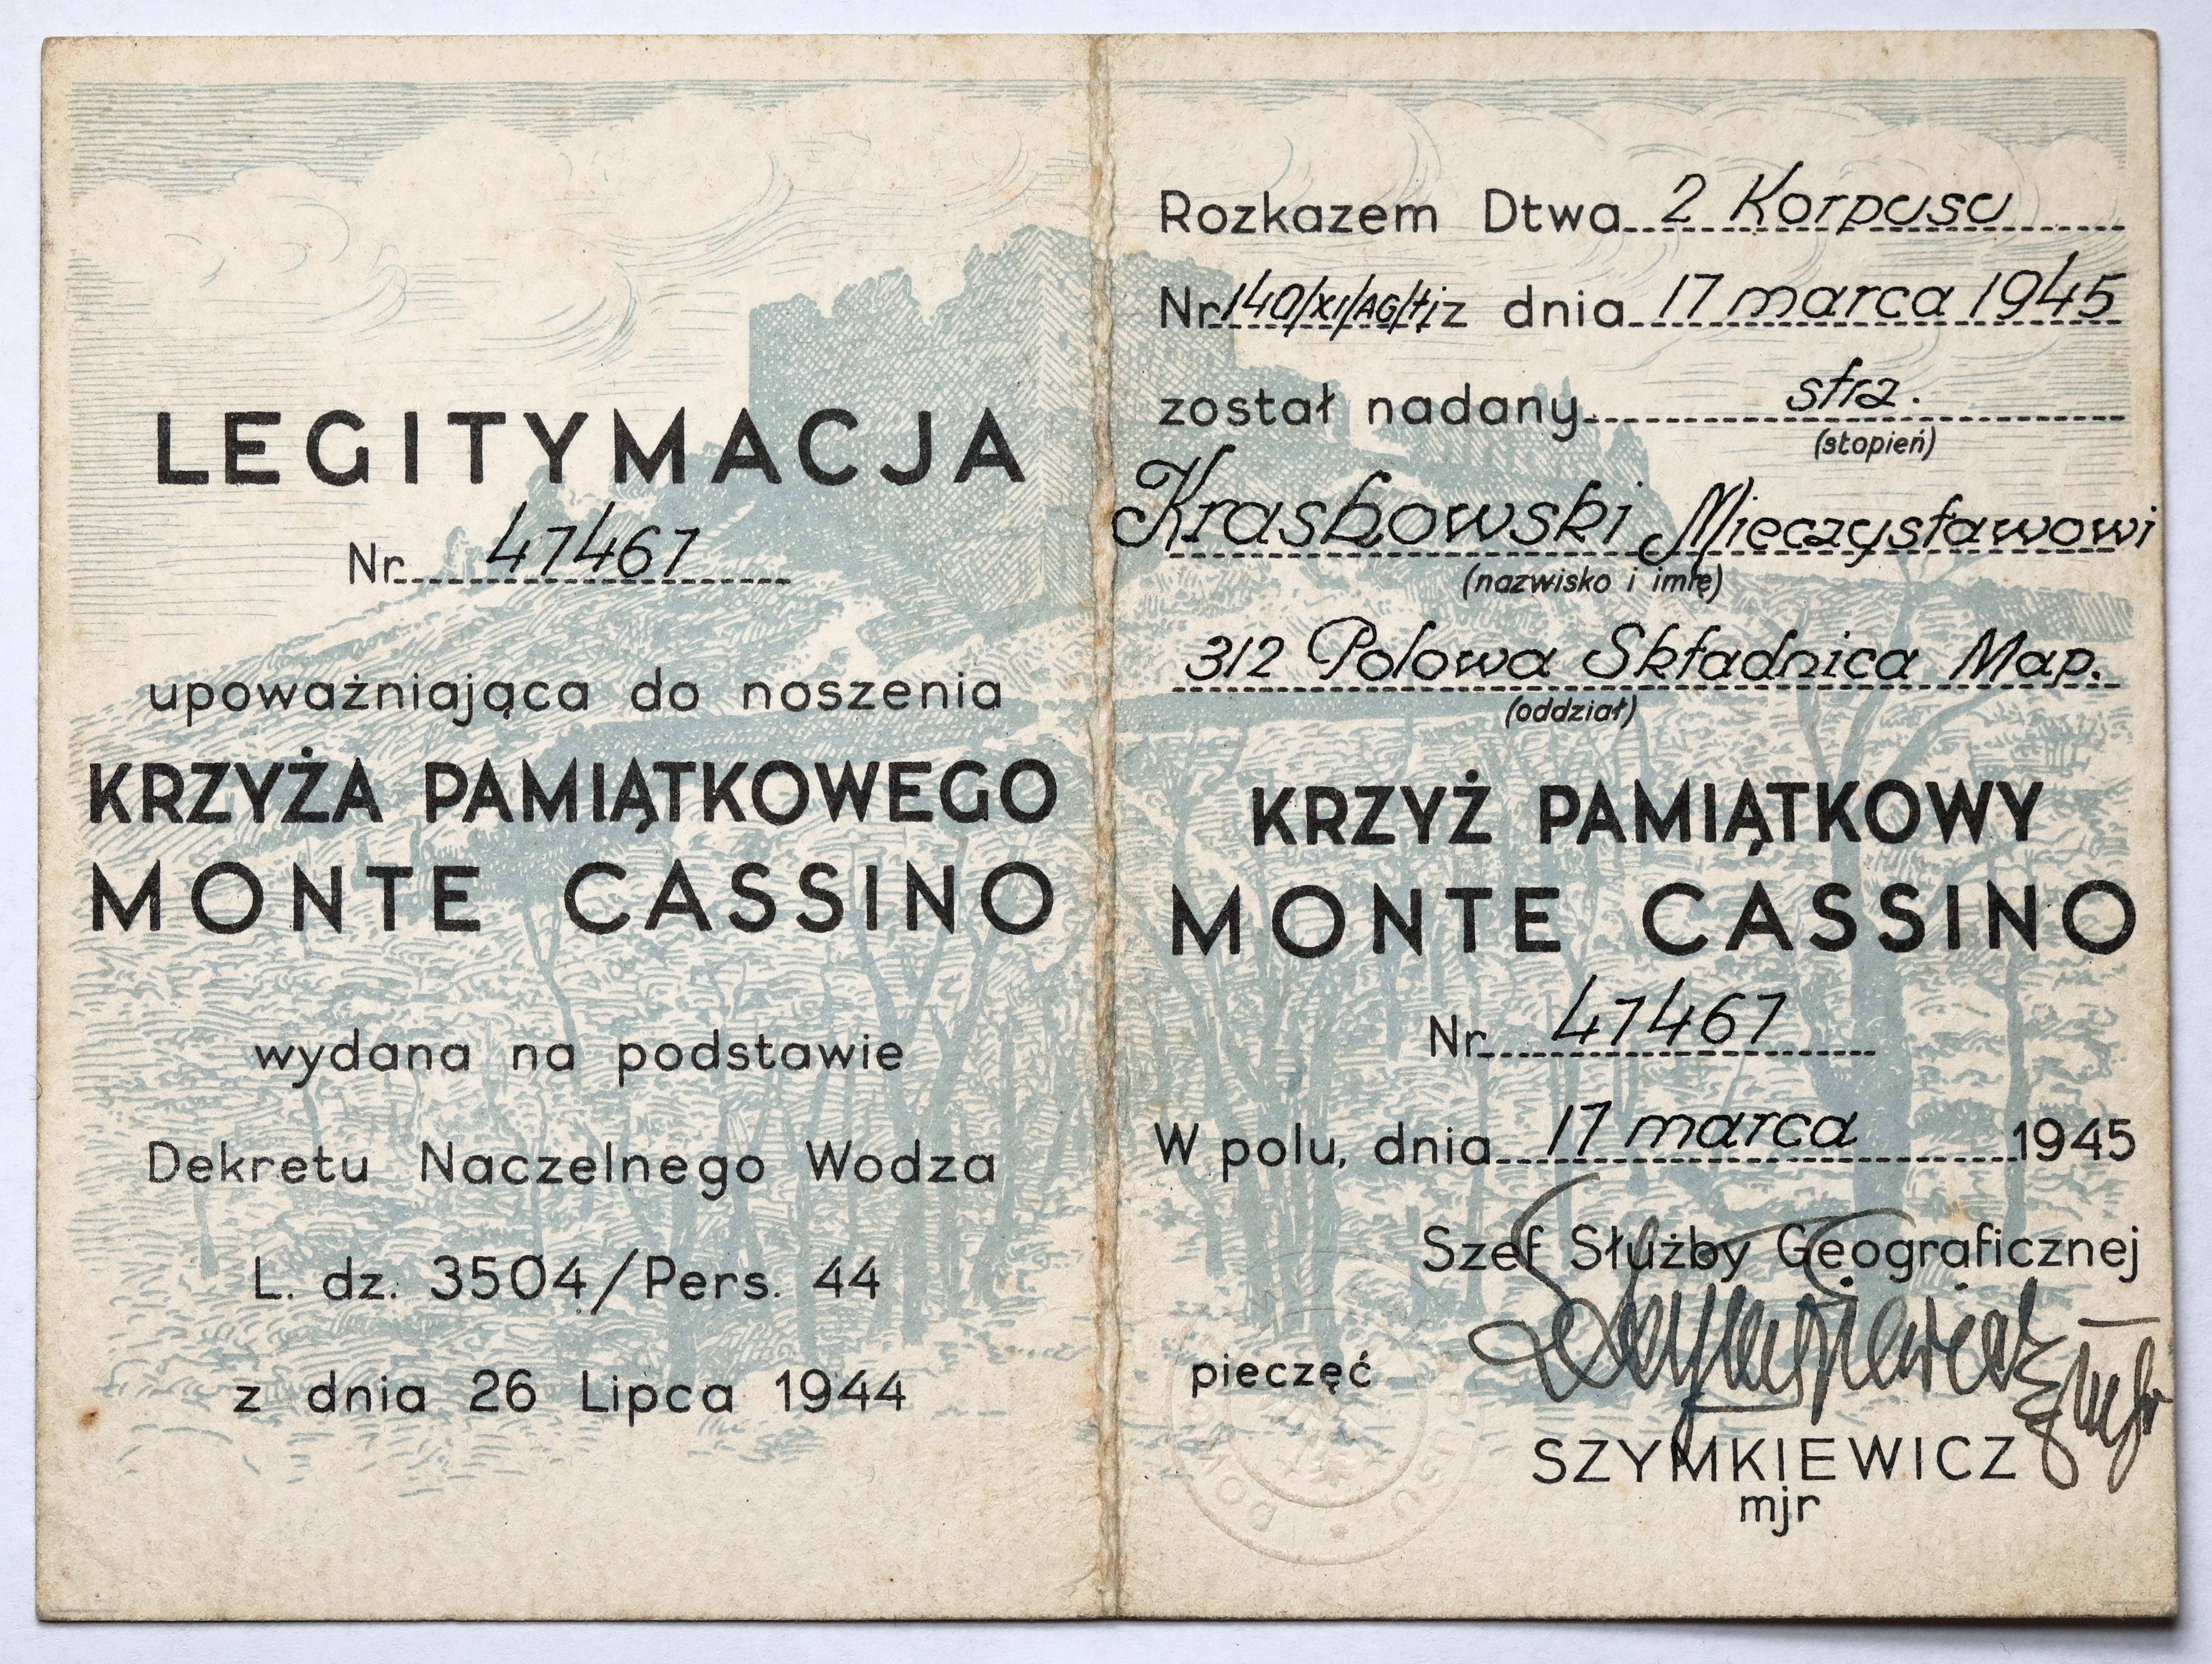 LEGITYMACJA
Nr 47467
upoważniająca do noszenia
KRZYŻA PAMIĄTKOWEGO
MONTE CASSINO
wydana na podstawie
Dekretu Naczelnego Wodza
L. dz. 3504/Pers. 44
z dnia 26 Lipca 1944
Rozkazem Dtwa 2 Korpusu
Nr 140/XI/AG/tj z dnia 17 marca 1945
został nadany strz.
(stopień)
Kraskowski Mieczysławowi
(nazwisko i imię)
312 Polowa Składnica Map.
(oddział)
KRZYŻ PAMIĄTKOWY
MONTE CASSINO
Nr 47467
W polu, dnia 17 marca 1945
Szef Służby Geograficznej
Szymkiewicz mjr
pieczęć
SZYMKIEWICZ
mjr